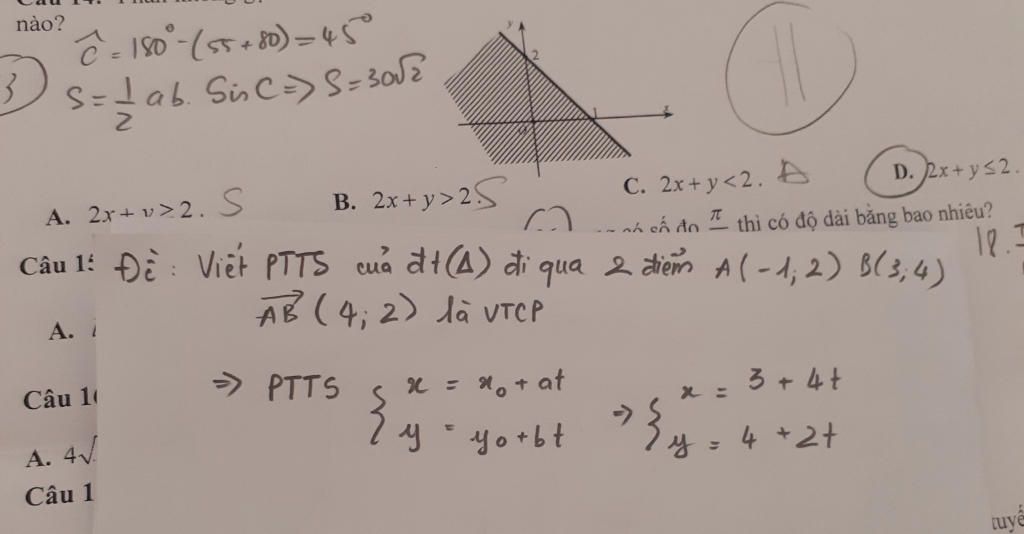 nào?
Ĉ = 180° - (55 + 80) = 45°
3
S = 1/2 ab. Sin C => S = 30√2
y
2
O
1
x
A. 2x + y > 2. S
B. 2x + y > 2. S
C. 2x + y < 2.
D. 2x + y ≤ 2.
số đo π thì có độ dài bằng bao nhiêu?
Câu 15
Đề: Viết PTTS của đt(Δ) đi qua 2 điểm A(-1; 2) B(3; 4)
AB (4; 2) là VTCP
A.
=> PTTS { x = x₀ + at => { x = 3 + 4t
y = y₀ + bt y = 4 + 2t
Câu 1
A. 4√
Câu 1
tuyế